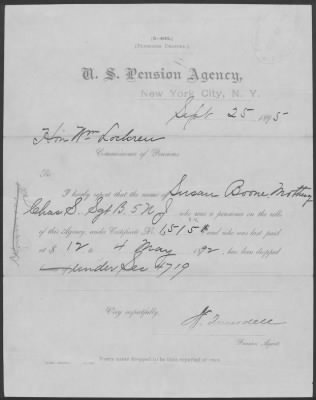 (PENSIONER DROPPED.)
U. S. Pension Agency,
New York City, N. Y.
Sept 25 1895
Hon Wm Lochren
Commissioner of Pensions
Sir:
I hereby report that the name of Susan Boone, Mother of
Chas S. Sgt B. 5 N J who was a pensioner on the rolls
of this Agency, under Certificate No. and who was last paid
at $ 12 to 4 May 92, has been dropped
under Sec 4719
Very respectfully,
Pension Agent.
Every name dropped to be thus reported at once.